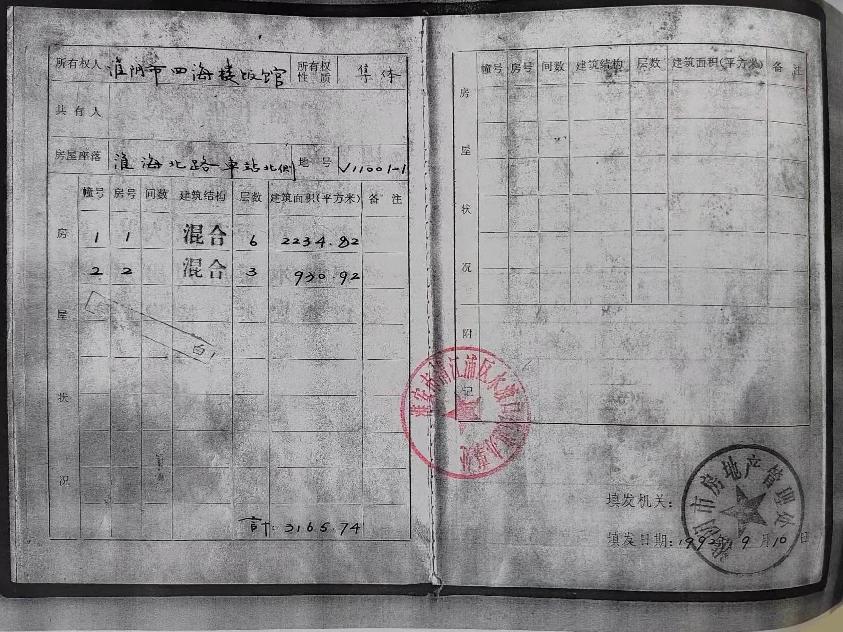 所有权人 淮阴市四海楼饭店 所有权性质 集体
共有人
房屋座落 淮海北路车站北侧 地号 V11001-1
房屋状况
幢号 房号 间数 建筑结构 层数 建筑面积(平方米) 备注
1 1 混合 6 2234.82
2 2 混合 3 930.92
计: 3165.74
幢号 房号 间数 建筑结构 层数 建筑面积(平方米) 备注
房屋状况
附记
填发机关:
淮阴市房地产管理处
填发日期: 9月10日